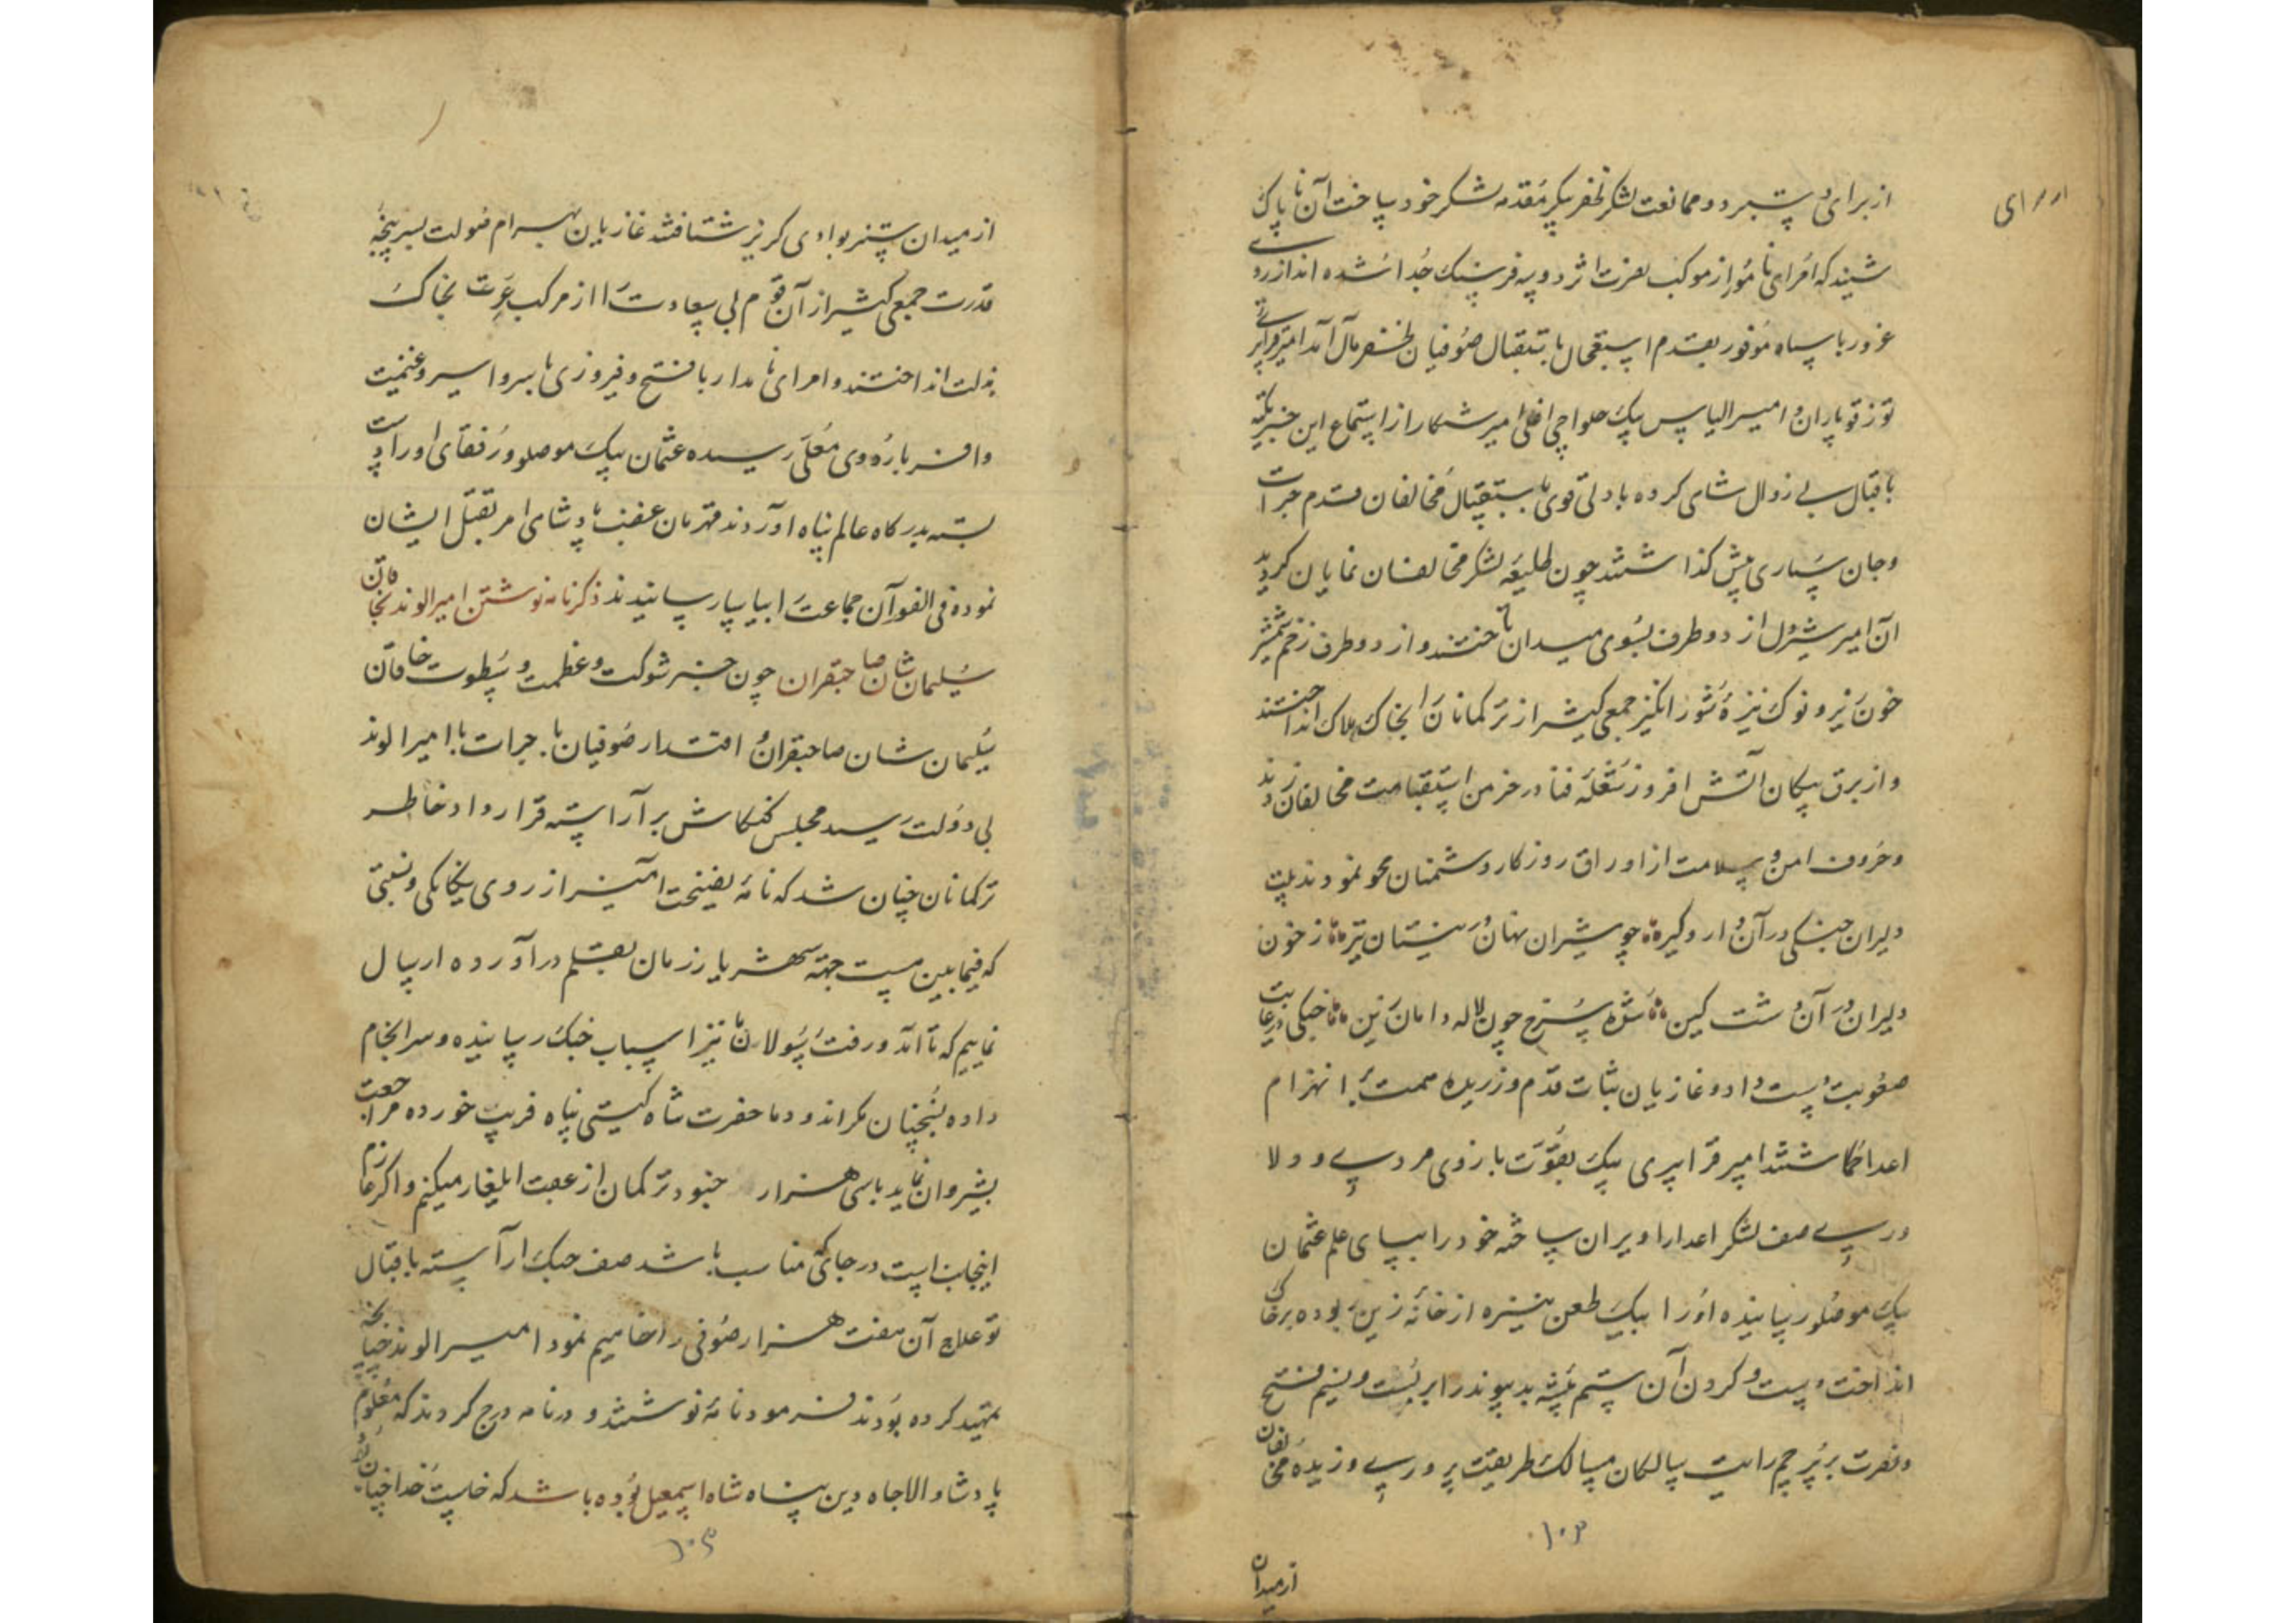 از برای دستبرد و ممانعت لشکر ظفر پیکر مقدمه لشکر خود ساخت آن ناپاک
شنید که امرای نامور از موکب نصرت اثر دو سه فرسنک جدا شده اند از روی
غرور با سپاه موفور بقدم استعجال باستقبال صوفیان غضنفر مآل آمد امیر قراپیری
توز قوپاران و امیر الیاس بیک حلواچی اغلی امیر شکار از استماع این خبر تکیه
باقبال بی زوال شاهی کرده با دلی قوی باستقبال مخالفان قدم جرات
و جان سپاری پیش کذاشتند چون طلیعه لشکر مخالفان نمایان کردید
آن امیر شیردل از دو طرف بسوی میدان تاختند و از دو طرف زخم شمشیر
خون ریز و نوک نیزه شور انکیز جمعی کثیر از ترکمانان را بخاک هلاک انداختند
و از برق پیکان آتش افروز شعله فنا در خرمن استقامت مخالفان زدند
و حروف امن و سلامت از اوراق روزکار دشمنان محو نمودند بیت
دلیران جنکی در آن دار و کیر چو شیران نهان در نیستان تیر ز خون
دلیران در آن دشت کین شده سرخ چون لاله دامان زین جنکی در غایت
صعوبت دست داد و غازیان بثبات قدم ورزیده همت بر انهزام
اعدا کماشتند امیر قراپیری بیک بقوت بازوی مردی و ولا
وری صف لشکر اعدا را ویران ساخته خود را بپای علم عثمان
بیک موصلو رسانیده او را بیک طعن نیزه از خانه زین ربوده بر خاک
انداخت و دست و کردن آن ستم پیشه بدپیوند را بر بست و نسیم فتح
و نصرت بر پرچم رایت سالکان مسالک طریقت پروری وزیده مخالفان
۱۰۳
از میدان
از میدان ستیز بوادی کریز شتافتند غازیان بهرام صولت بسرپنجه
قدرت جمعی کثیر از آن قوم بی سعادت را از مرکب عزت بخاک
ذلت انداختند و امرای نامدار با فتح و فیروزی با سر و اسیر و غنیمت
وافر باردوی معلی رسیده عثمان بیک موصلو و رفقای او را دست
بسته بدرکاه عالم پناه آوردند قهرمان غضب پادشاهی امر بقتل ایشان
نموده فی الفور آن جماعت را بیاسا رسانیدند ذکر نامه نوشتن امیر الوند بخاقان
سلیمان شان صاحبقران چون خبر شوکت و عظمت و سطوت خاقان
سلیمان شان صاحبقران و اقتدار صوفیان با جرات بامیر الوند
بی دولت رسید مجلس کنکاش بر آراسته قرارداد خاطر
ترکمانان چنان شد که نامه نصیحت آمیز از روی یکانکی و نسبتی
که فیمابین هست جهته شهریار زمان بقلم در آورده ارسال
نماییم که تا آمد و رفت رسولان ما نیز اسباب جنک رسانیده و سرانجام
داده بخچپنان مکر اندود ما حضرت شاه کیتی پناه فریب خورده مراجعت
بشیروان نماید با سی هزار جنود ترکمان از عقب ایلغار میکنیم و اکر عازم
اینجانب است در جائی مناسب باشد صف جنک آراسته باقبال
تو علاج آن هفت هزار صوفی را خواهیم نمود امیر الوند چنانچه
تمهید کرده بودند فرمود نامه نوشتند و در نامه درج کردند که معلوم
پادشاه والاجاه دین پناه شاه اسمعیل بوده باشد که خاست خدا چنان بود
۱۰۴